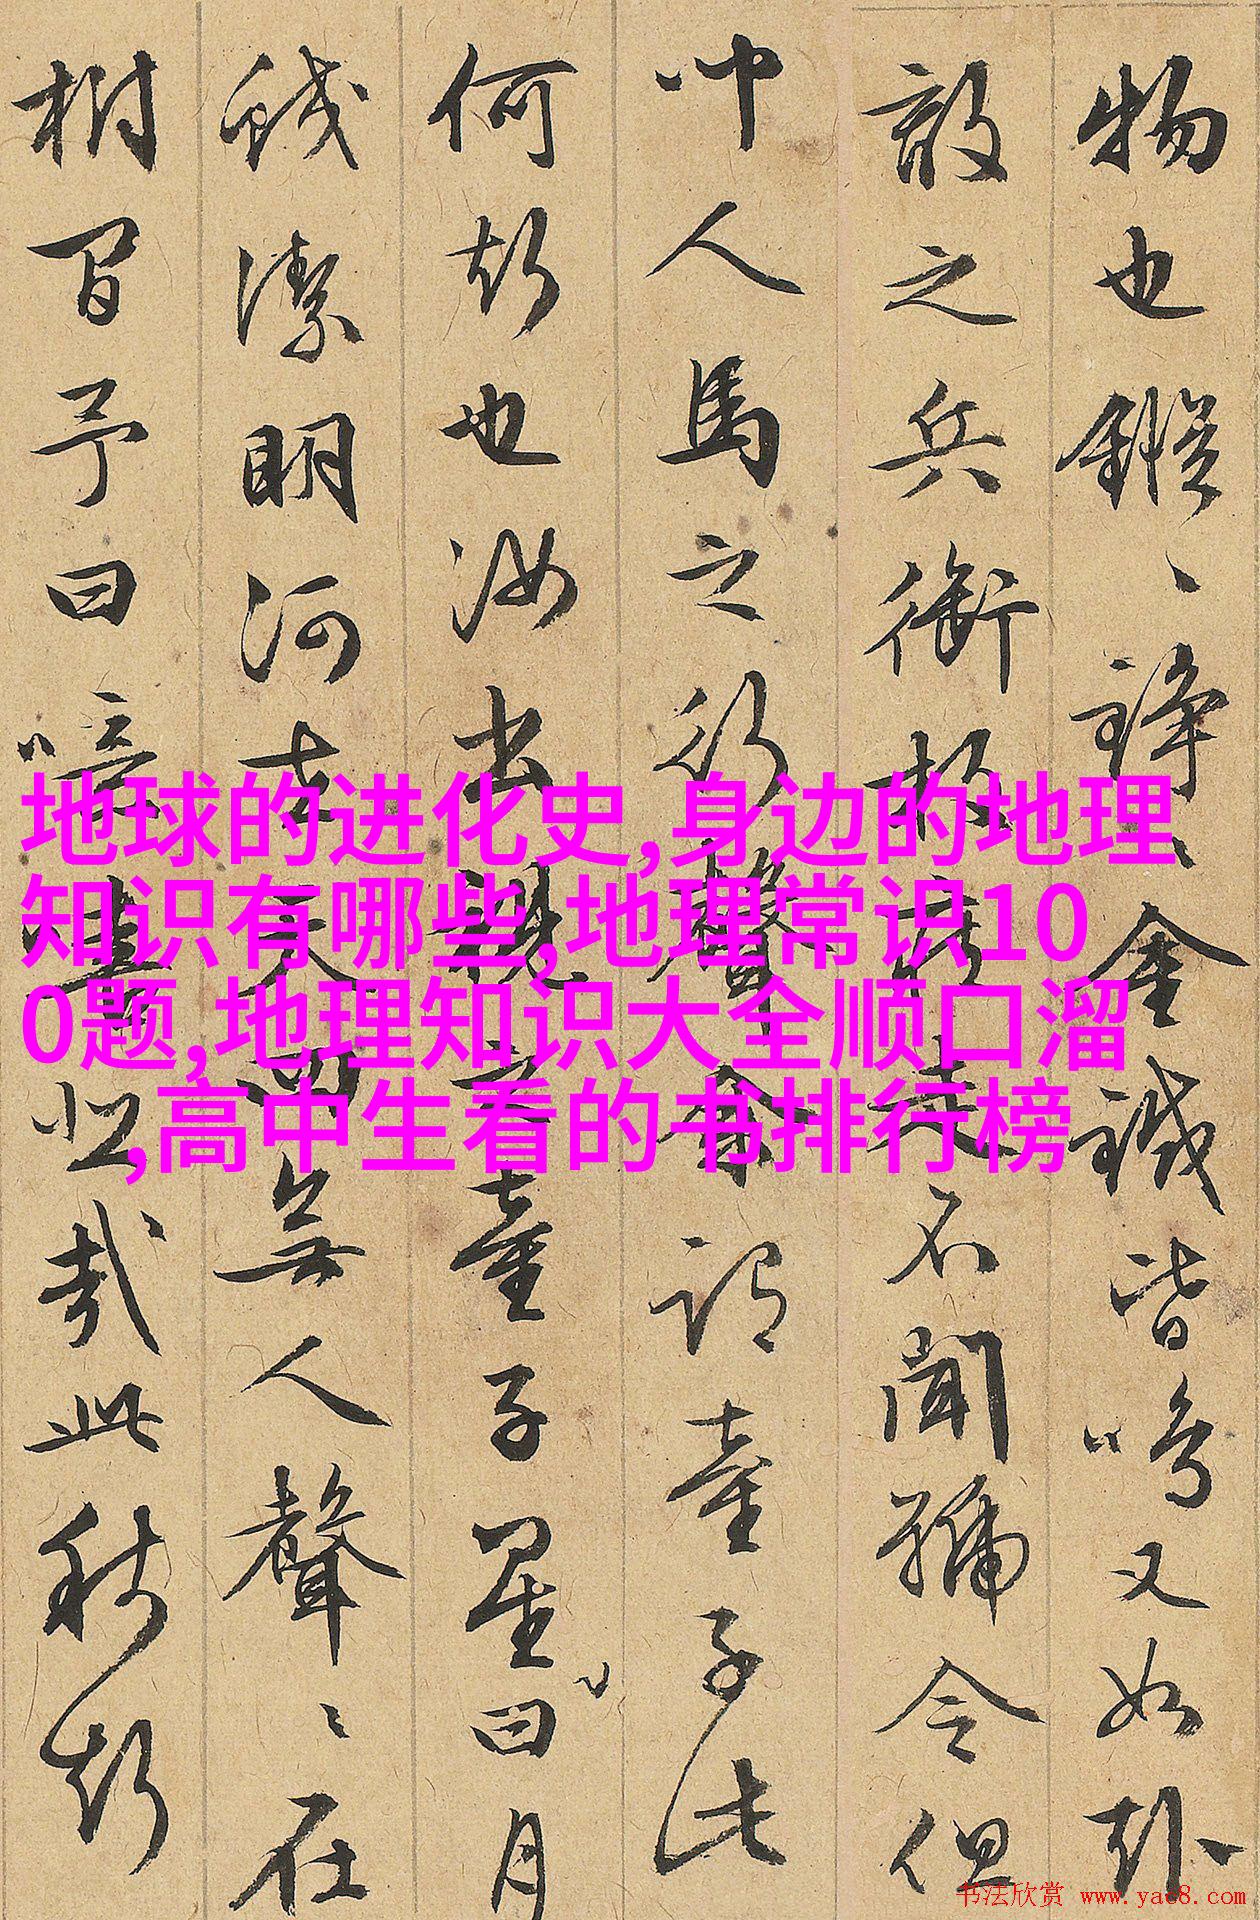 物也鏦〻錚〻金鐵皆鳴又如赴
敵之兵銜枚疾走不聞號令但
聞人馬之行聲余謂童子此
何聲也汝出視之童子星曰月
皎潔明河在天四無人聲〻在
樹間予曰噫嘻悲哉此秋聲
地球的进化史,身边的地理
知识有哪些,地理常识10
0题,地理知识大全顺口溜
,高中生看的书排行榜
书法欣赏 www.yac8.com